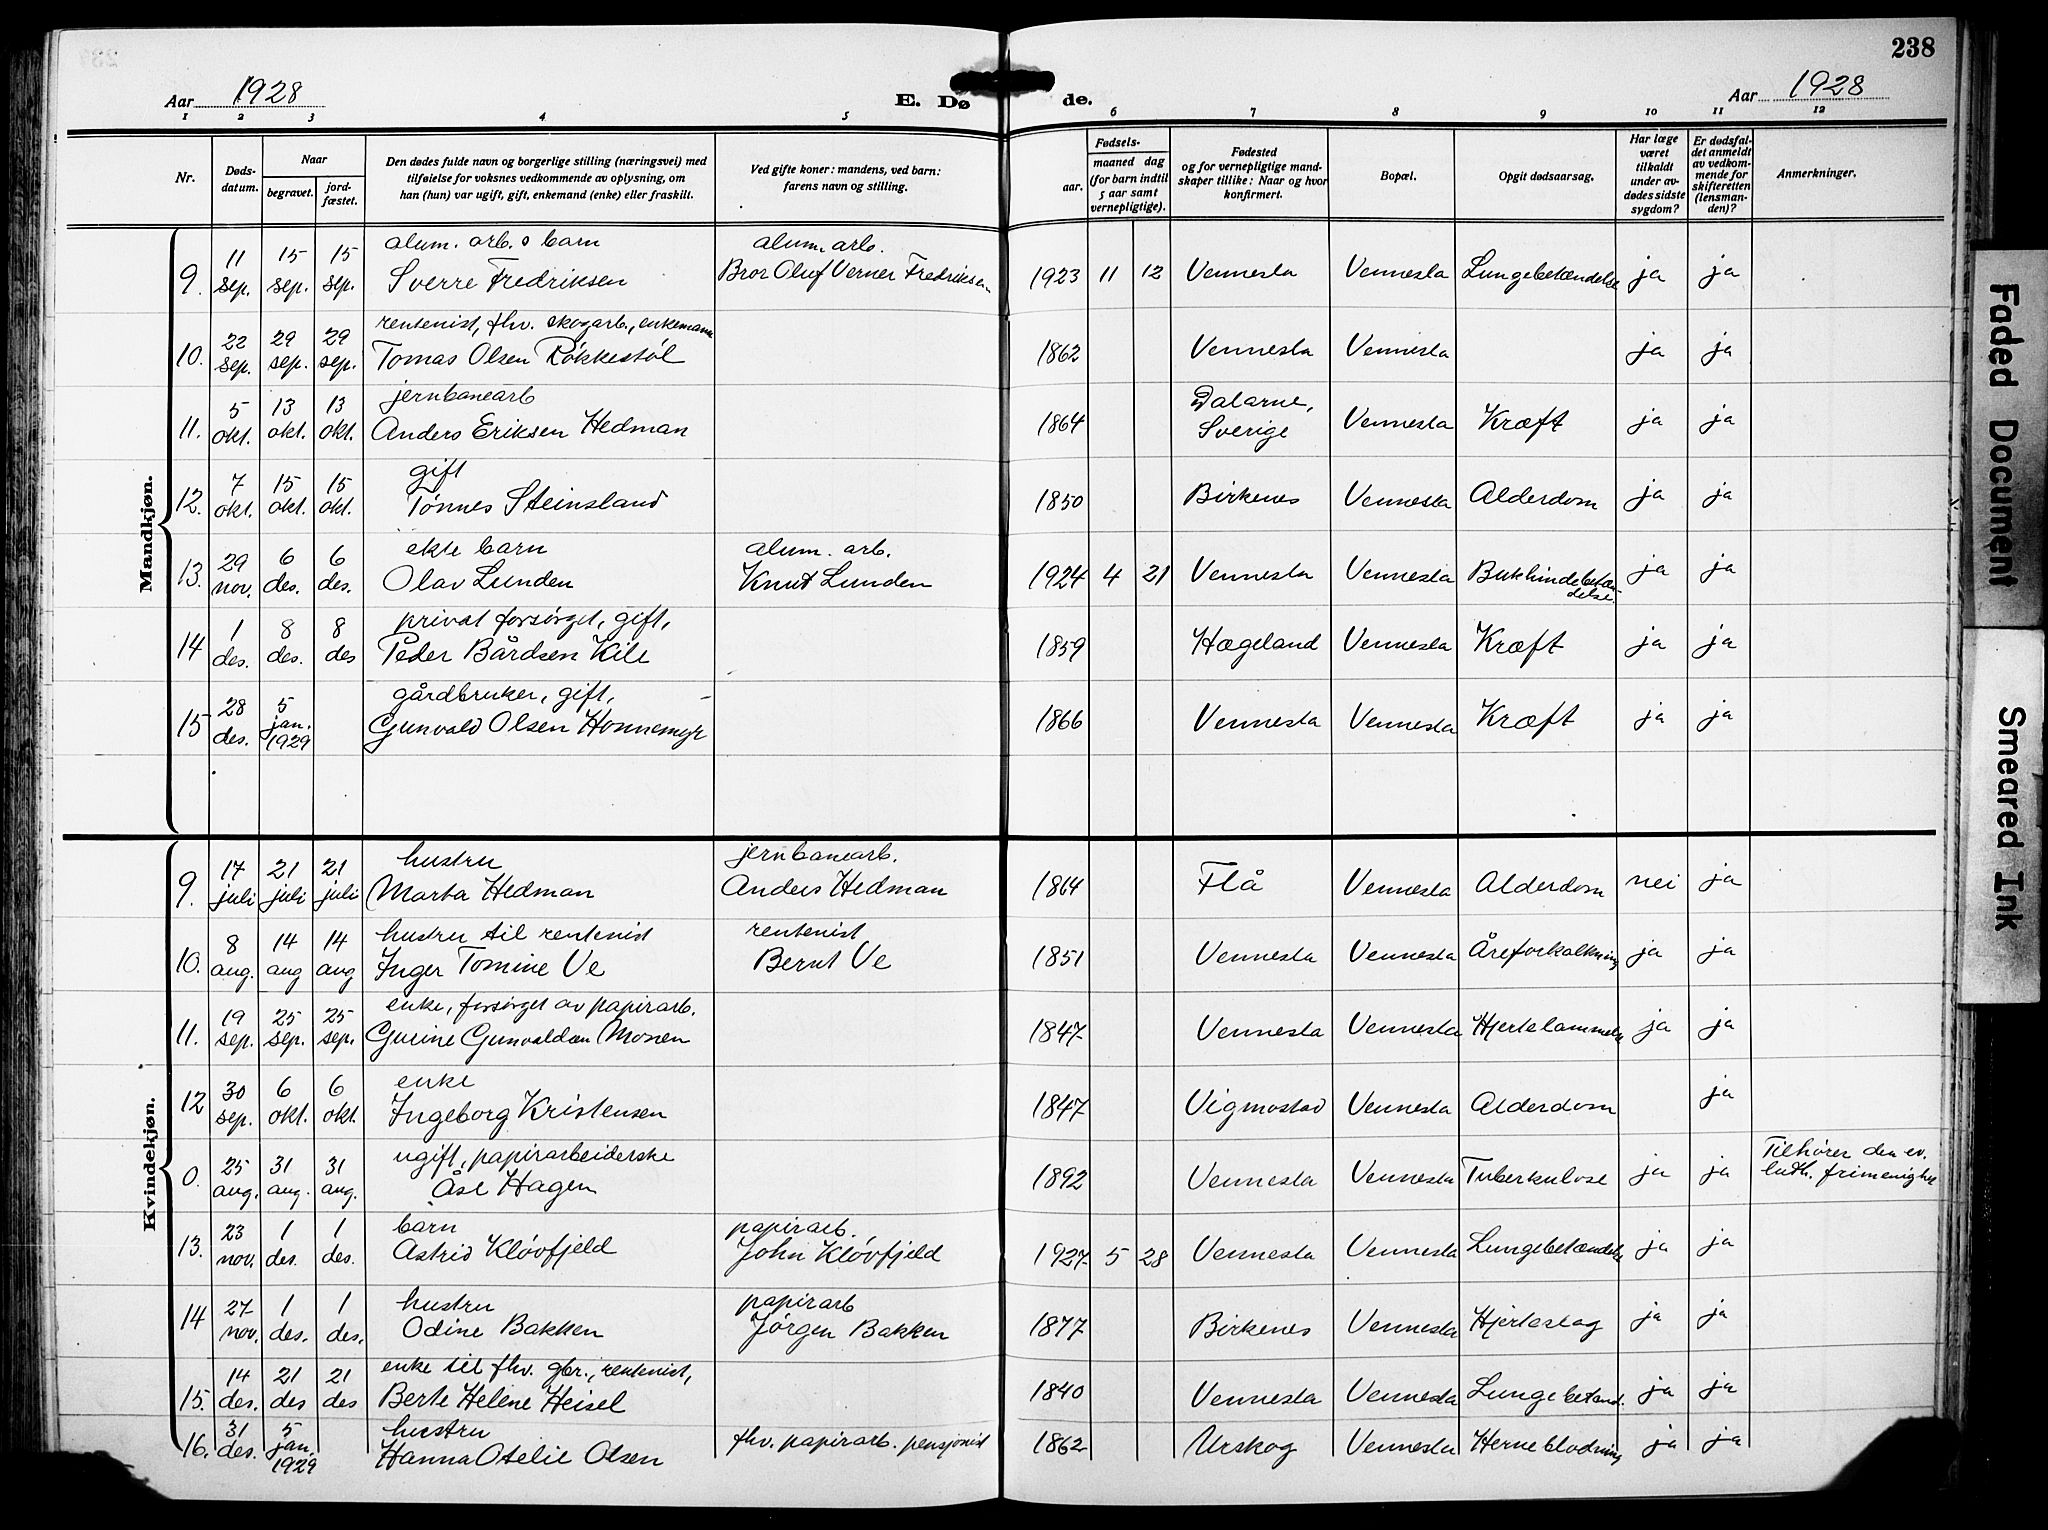 238
Aar 1928
E. Dø de.
Aar 1928
1 2 3 4 5 6 7 8 9 10 11 12
Nr.
Døds-
datum.
Naar
begravet.
jord-
fæstet.
Den dødes fulde navn og borgerlige stilling (næringsvei) med
tilføielse for voksnes vedkommende av oplysning, om
han (hun) var ugift, gift, enkemand (enke) eller fraskilt.
Ved gifte koner: mandens, ved barn:
farens navn og stilling.
Fødsels-
aar.
maaned dag
(for barn indtil
5 aar samt
vernepligtige).
Fødested
og for vernepligtige mand-
skaper tillike: Naar og hvor
konfirmert.
Bopæl.
Opgit dødsaarsag.
Har læge
været
tilkaldt
under av-
dødes sidste
sygdom?
Er dødsfal-
det anmeldt
av vedkom-
mende for
skifteretten
(lensman-
den)?
Anmerkninger.
Mandkjøn.
alum. arb.s barn alum. arb.
9. 11 sep. 15 sep. 15 sep. Sverre Fredriksen Bror Oluf Verner Fredriksen 1923 11 12 Vennesla Vennesla Lungebetændelse ja ja
rentenist, fhv. skogarb., enkemann
10. 22 sep. 29 sep. 29 sep. Tomas Olsen Røkkestøl 1862 Vennesla Vennesla ja ja
jernbanearb
11. 5 okt. 13 okt. 13 okt. Anders Eriksen Hedman 1864 Dalarne, Sverige Vennesla Kræft ja ja
gift
12. 7 okt. 15 okt. 15 okt. Tønnes Steinsland 1850 Birkenes Vennesla Alderdom ja ja
ekte barn alum. arb.
13. 29 nov. 6 des. 6 des. Olav Lunden Knut Lunden 1924 4 21 Vennesla Vennesla Bukhindebetæn-
delse. ja ja
privat forsørget, gift,
14 1 des. 8 des. 8 des Peder Bårdsen Kile 1859 Hægeland Vennesla Kræft ja ja
gårdbruker, gift,
15 28 des. 5 jan. 1929 Gunvald Olsen Honnemyr 1866 Vennesla Vennesla Kræft ja ja
Kvindekjøn.
hustru jernbanearb.
9. 17 juli 21 juli 21 juli Marta Hedman Anders Hedman 1864 Flå Vennesla Alderdom nei ja
hustru til rentenist rentenist
10. 8 aug. 14 aug 14 aug Inger Tomine Ve Bernt Ve 1851 Vennesla Vennesla Åreforkalkning ja ja
enke, forsørget av papirarb.
11. 19 sep. 25 sep. 25 sep. Gurine Mosen 1847 Vennesla Vennesla Hjertelammelse ja ja
enke
12 30 sep. 6 okt. 6 okt. Ingeborg Kristensen 1847 Vigmostad Vennesla Alderdom ja
ugift, papirarbeiderske
0. 25 aug. 31 aug. 31 aug. Åse Hagen 1892 Vennesla Vennesla Tuberkulose ja ja Tilhører den ev.
luth. frimenighet
barn papirarb.
13. 23 nov. 1 des. 1 des. Astrid Kløvfjeld John Kløvfjeld 1927 5 28 Vennesla Vennesla Lungebetændelse ja ja
hustru papirarb
14 27 nov. 1 des. 1 des. Odine Bakken Jørgen Bakken 1877 Birkenes Vennesla Hjerteslag ja ja
enke til fhv. gbr., rentenist,
15. 14 des. 21 des 21 des Berte Helene Heisel 1840 Vennesla Vennesla Lungebetænd. ja ja
hustru
16. 31 des. 5 jan. 1929 Hanna Otelie Olsen fhv. papirarb. pensjonist 1862 Urskog Vennesla Herneblødning ja ja
Faded Document
Smeared Ink